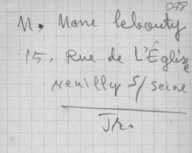 078
M. Mane lebouty
15, Rue de L'Église
Neuilly S/Seine
Tr.